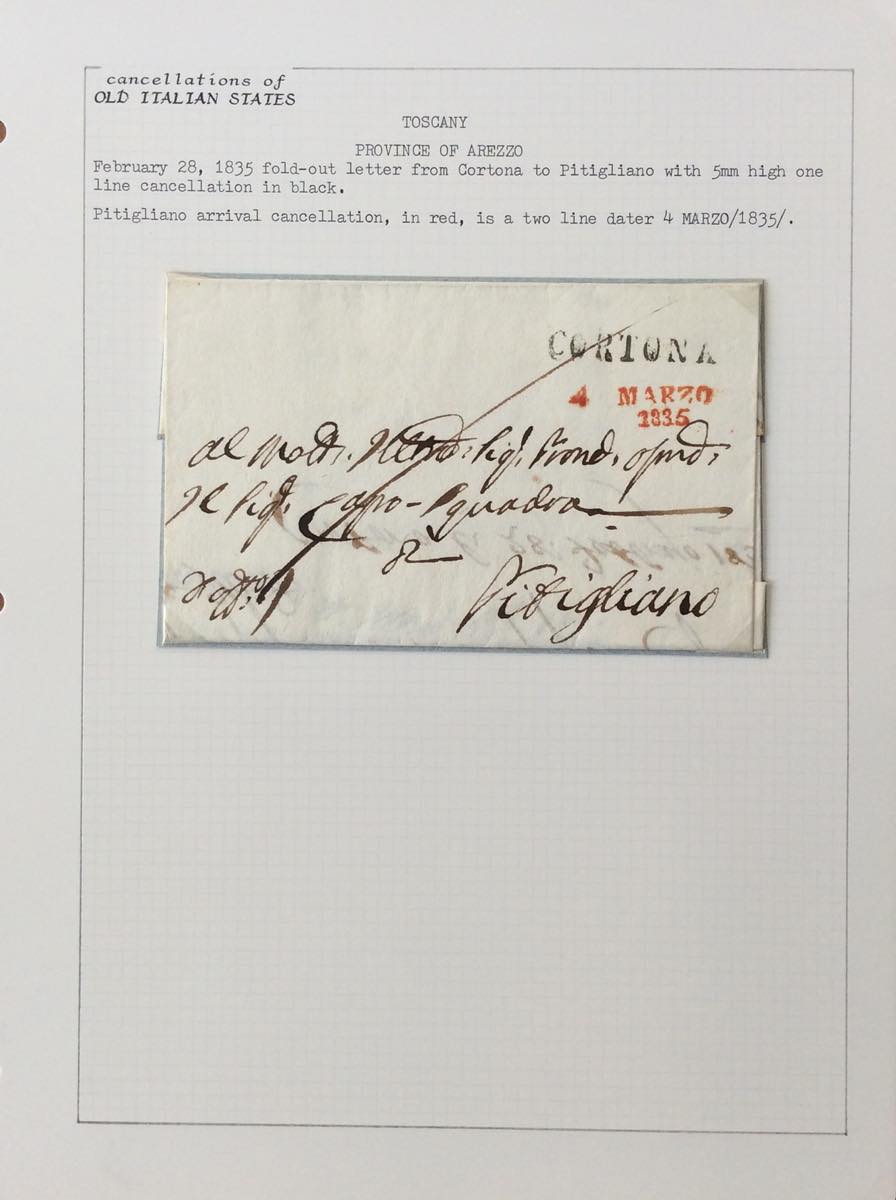 cancellations of
OLD ITALIAN STATES
TOSCANY
PROVINCE OF AREZZO
February 28, 1835 fold-out letter from Cortona to Pitigliano with 5mm high one
line cancellation in black.
Pitigliano arrival cancellation, in red, is a two line dater 4 MARZO/1835/.
CORTONA
4 MARZO
1835
Al Molt. Sig.
Il Sig. Capo-Squadra
di
Pitigliano